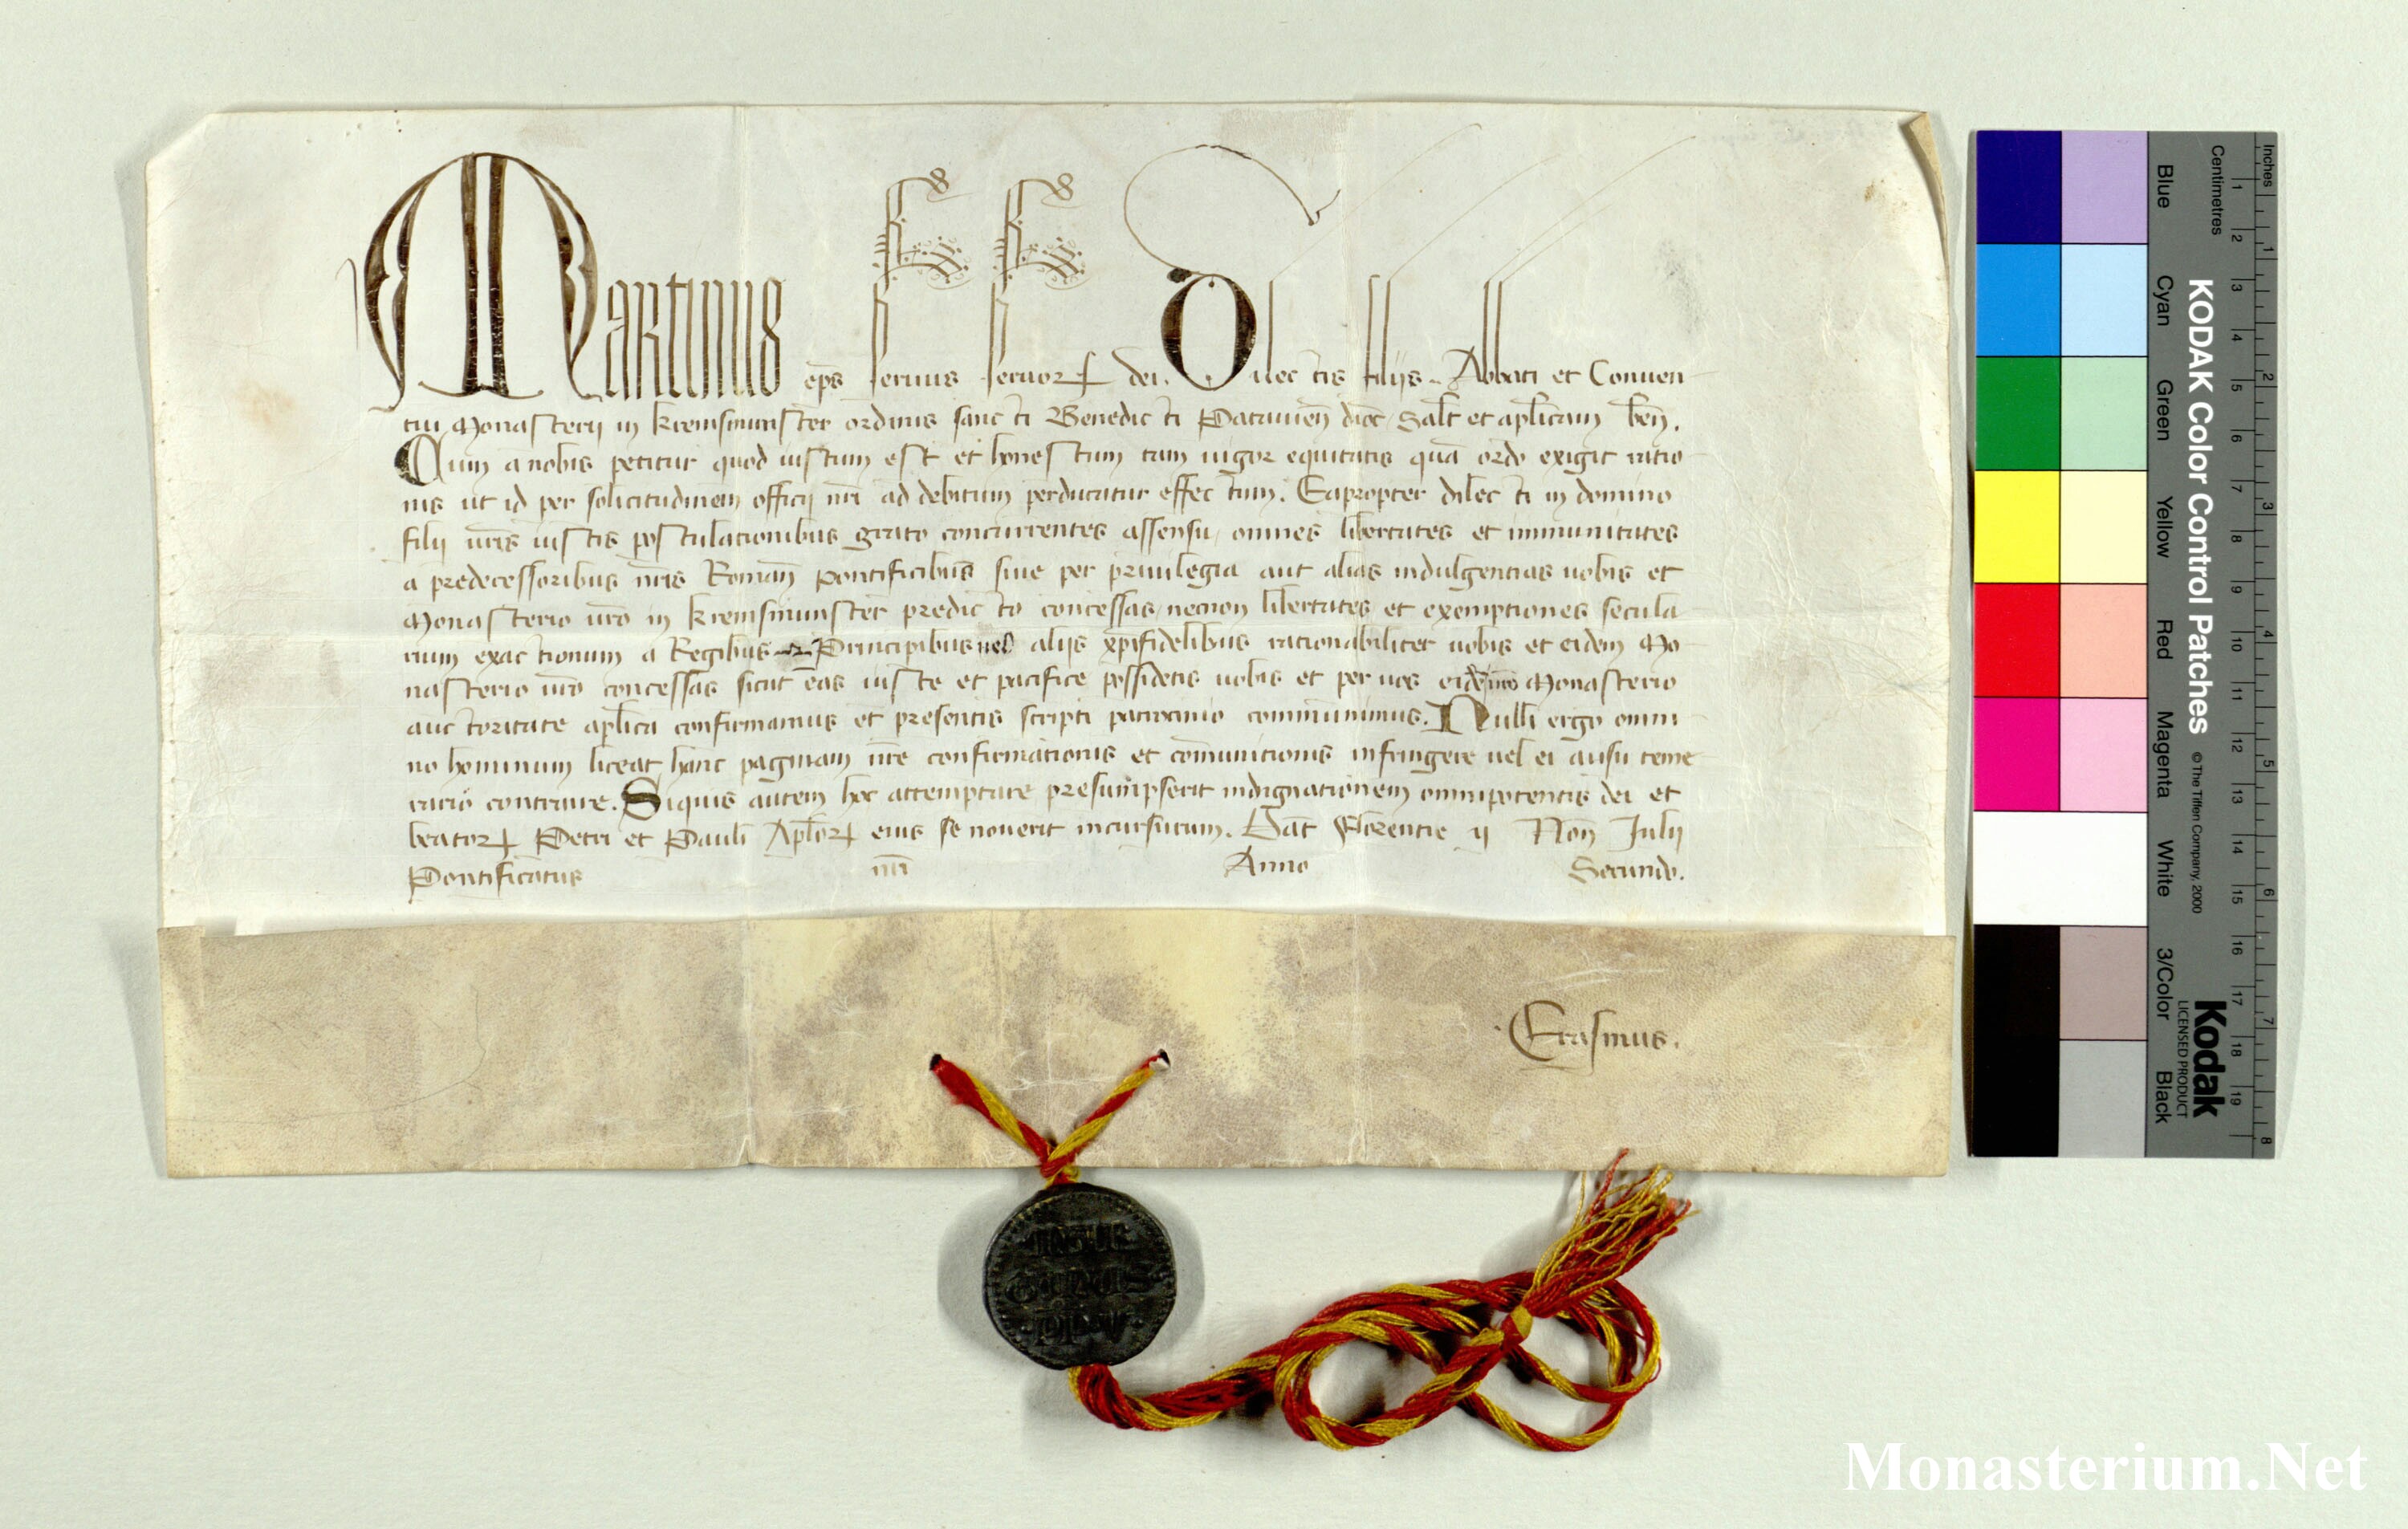 Martinus eps seruus seruor dei. Dilectis filijs .. Abbati et Conuen
tui Monasterij in Kremsmunster ordinis sancti Benedicti Patauien dioc Salt et aplicam ben.
Cum a nobis petitur quod iustum est et honestum tam uigor equitatis qua ordo exigit ratio
nis ut id per solicitudinem officij nri ad debitum perducatur effectum. Eapropter dilecti in domino
filij uris iustis postulationibus grato concurrentes assensu, omnes libertates et immunitates
a predecessoribus nris Roman pontificibus siue per priuilegia aut alias indulgentias uobis et
Monasterio uro in Kremsmunster predicto concessas, necnon libertates et exemptiones secula
rium exactionum a Regibus Principibus uel alijs xpifidelibus rationabiliter uobis et eidem Mo
nasterio uro concessas sicut eas iuste et pacifice possidetis uobis et per uos eidem uro Monasterio
auctoritate aplica confirmamus et presentis scripti patrocinio communimus. Nulli ergo omni
no hominum liceat hanc paginam nre confirmationis et comunitionis infringere uel ei ausu teme
rario contraire. Siquis autem hoc attemptare presumpserit indignationem omnipotentis dei et
beator Petri et Pauli Aplor eius se nouerit incursurum. Dat Florentie ij Non Julij
Pontificatus nri Anno Secundo.
Erasmus.
Blue
Cyan
Green
Yellow
Red
Magenta
White
3/Color
Black
KODAK Color Control Patches
© The Tiffen Company, 2000
Kodak
LICENSED PRODUCT
Centimetres
1 2 3 4 5 6 7 8 9 10 11 12 13 14 15 16 17 18 19
Inches
1 2 3 4 5 6 7 8
Monasterium.Net